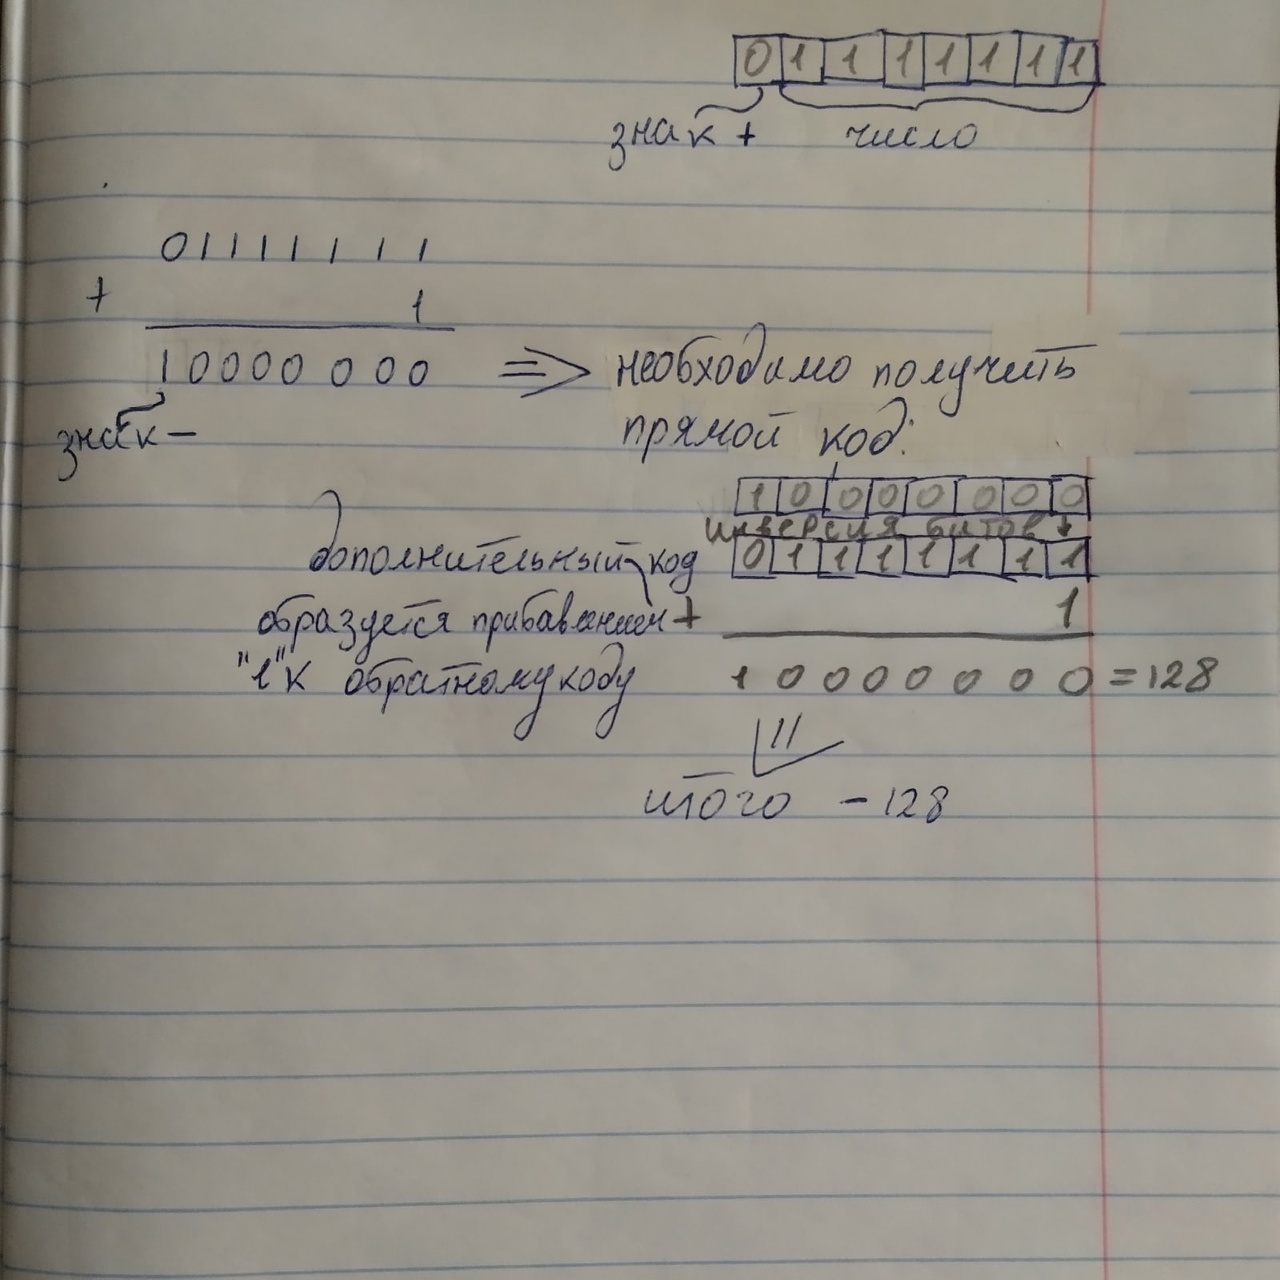 01111111
знак + число
01111111
+ 1
10000000 => необходимо получить
знак – прямой код:
10000000
инверсия битов ↓
дополнительный код 01111111
образуется прибавлением + 1
"1" к обратному коду 10000000 = 128
итого – 128